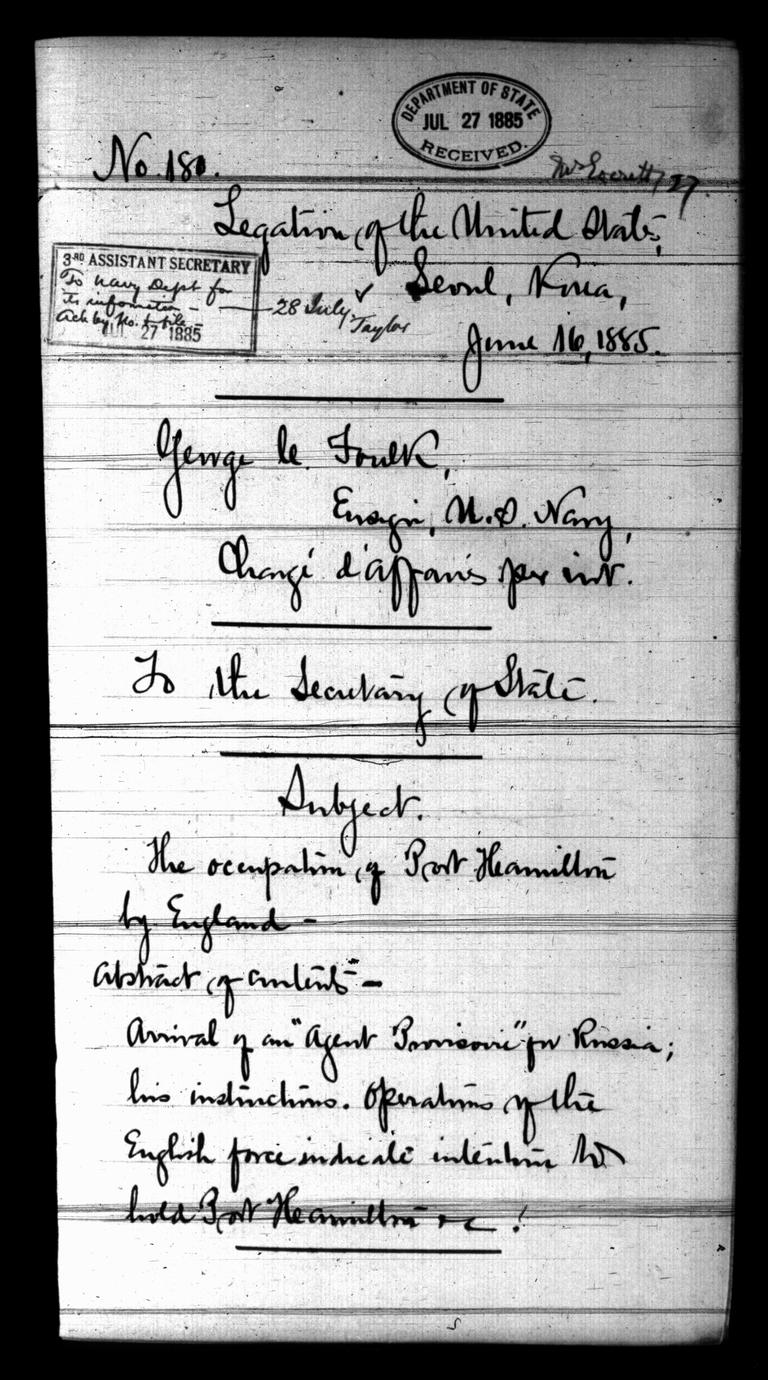 DEPARTMENT OF STATE
JUL 27 1885
RECEIVED.
No. 180.
Mr Everett / 27.
Legation of the United States,
Seoul, Korea,
June 16, 1885.
3RD ASSISTANT SECRETARY
To Navy Dept for
its information —
Ack by No. & file —
JUL 27 1885
28 July
Taylor
George C. Foulk,
Ensign, U.S. Navy,
Chargé d'affaires per int.
To the Secretary of State.
Subject.
The occupation of Port Hamilton
by England —
Abstract of contents —
Arrival of an "Agent Provisoire" for Russia;
his instructions. Operations of the
English force indicate intention to
hold Port Hamilton &c.